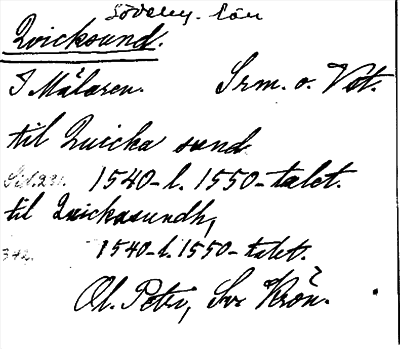 Södeby-län
Qvicksund.
I Mälaren. Srm. o. Vst.
til Quicka sund
Sid. 221. 1540-t. 1550-talet.
til Quickasundh,
342. 1540-t. 1550-talet.
Ol. Petri, Sv. Krön.